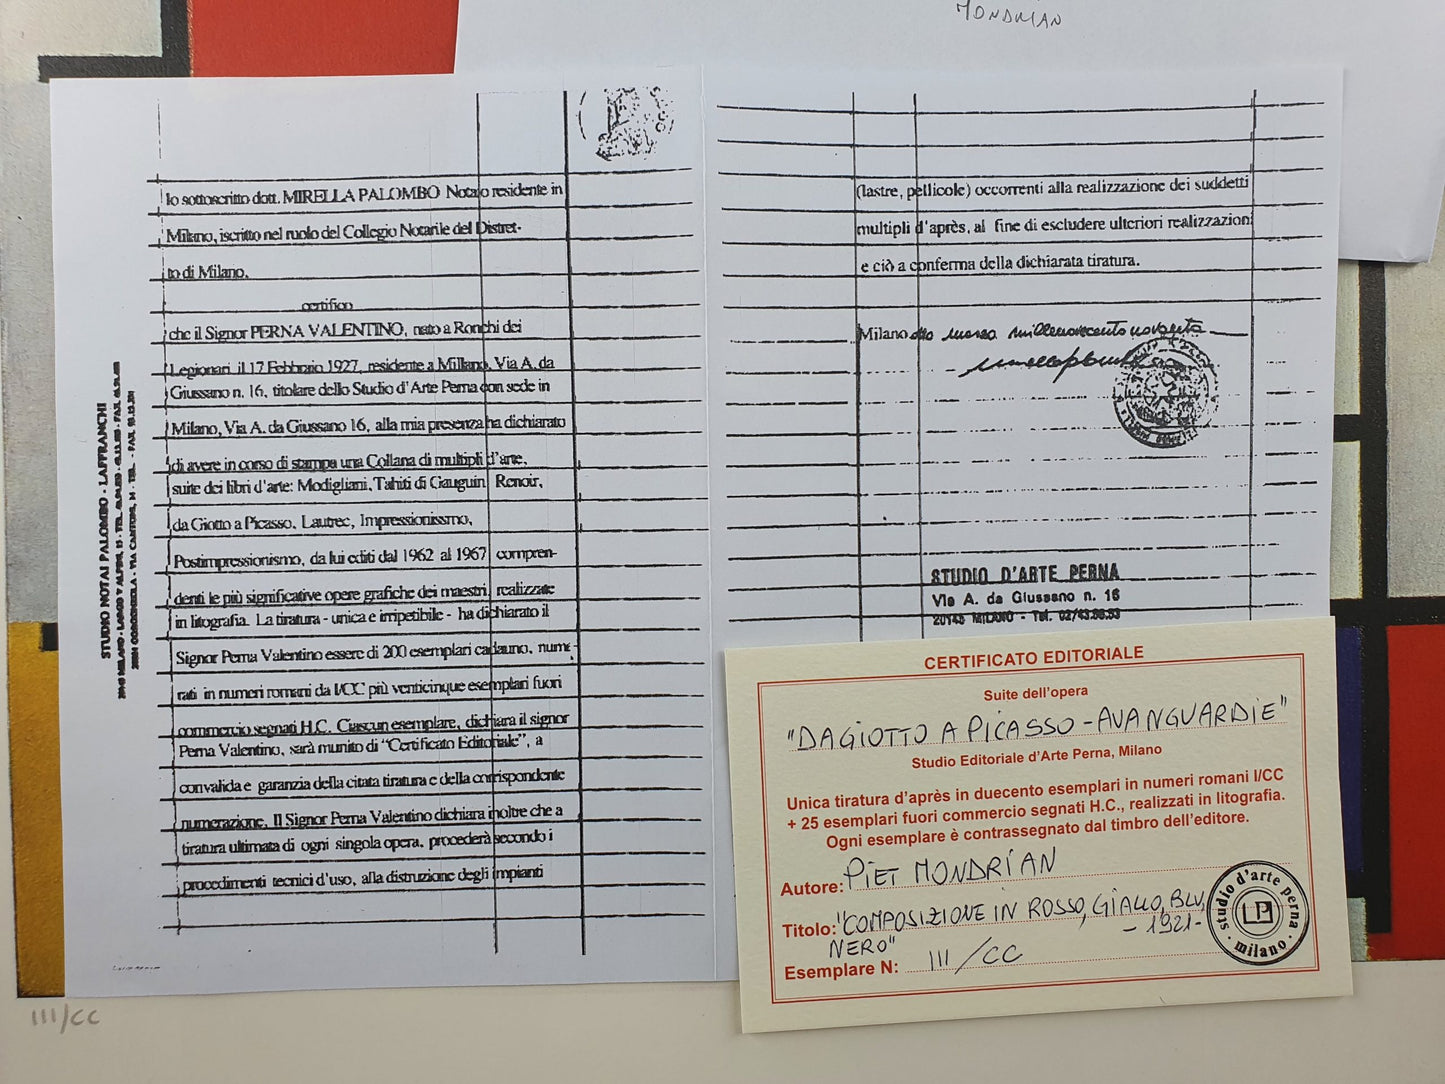 MONDRIAN
Io sottoscritto dott. MIRELLA PALOMBO Notaio residente in
Milano, iscritto nel ruolo del Collegio Notarile del Distret-
to di Milano,
certifico
che il Signor PERNA VALENTINO, nato a Ronchi dei
Legionari, il 17 Febbraio 1927, residente a Millano, Via A. da
Giussano n. 16, titolare dello Studio d'Arte Perna con sede in
Milano, Via A. da Giussano 16, alla mia presenza ha dichiarato
di avere in corso di stampa una Collana di multipli d'arte,
suite dei libri d'arte: Modigliani, Tahiti di Gauguin, Renoir,
da Giotto a Picasso, Lautrec, Impressionismo,
Postimpressionismo, da lui editi dal 1962 al 1967, compren-
denti le più significative opere grafiche dei maestri, realizzate
in litografia. La tiratura - unica e irripetibile - ha dichiarato il
Signor Perna Valentino essere di 200 esemplari cadauno, nume-
rati in numeri romani da I/CC più venticinque esemplari fuori
commercio segnati H.C. Ciascun esemplare, dichiara il signor
Perna Valentino, sarà munito di "Certificato Editoriale", a
convalida e garanzia della citata tiratura e della corrispondente
numerazione. Il Signor Perna Valentino dichiara inoltre che a
tiratura ultimata di ogni singola opera, procederà secondo i
procedimenti tecnici d'uso, alla distruzione degli impianti
STUDIO NOTAI PALOMBO - LAFFRANCHI
(lastre, pellicole) occorrenti alla realizzazione dei suddetti
multipli d'après, al fine di escludere ulteriori realizzazioni
e ciò a conferma della dichiarata tiratura.
Milano otto marzo millenovecentonovanta
STUDIO D'ARTE PERNA
Via A. da Giussano n. 16
20145 MILANO - Tel. 02/43.58.53
CERTIFICATO EDITORIALE
Suite dell'opera
"DA GIOTTO A PICASSO - AVANGUARDIE"
Studio Editoriale d'Arte Perna, Milano
Unica tiratura d'après in duecento esemplari in numeri romani I/CC
+ 25 esemplari fuori commercio segnati H.C., realizzati in litografia.
Ogni esemplare è contrassegnato dal timbro dell'editore.
Autore: PIET MONDRIAN
Titolo: "COMPOSIZIONE IN ROSSO, GIALLO, BLU,
NERO" - 1921 -
Esemplare N: III/CC
studio d'arte perna
milano
III/CC